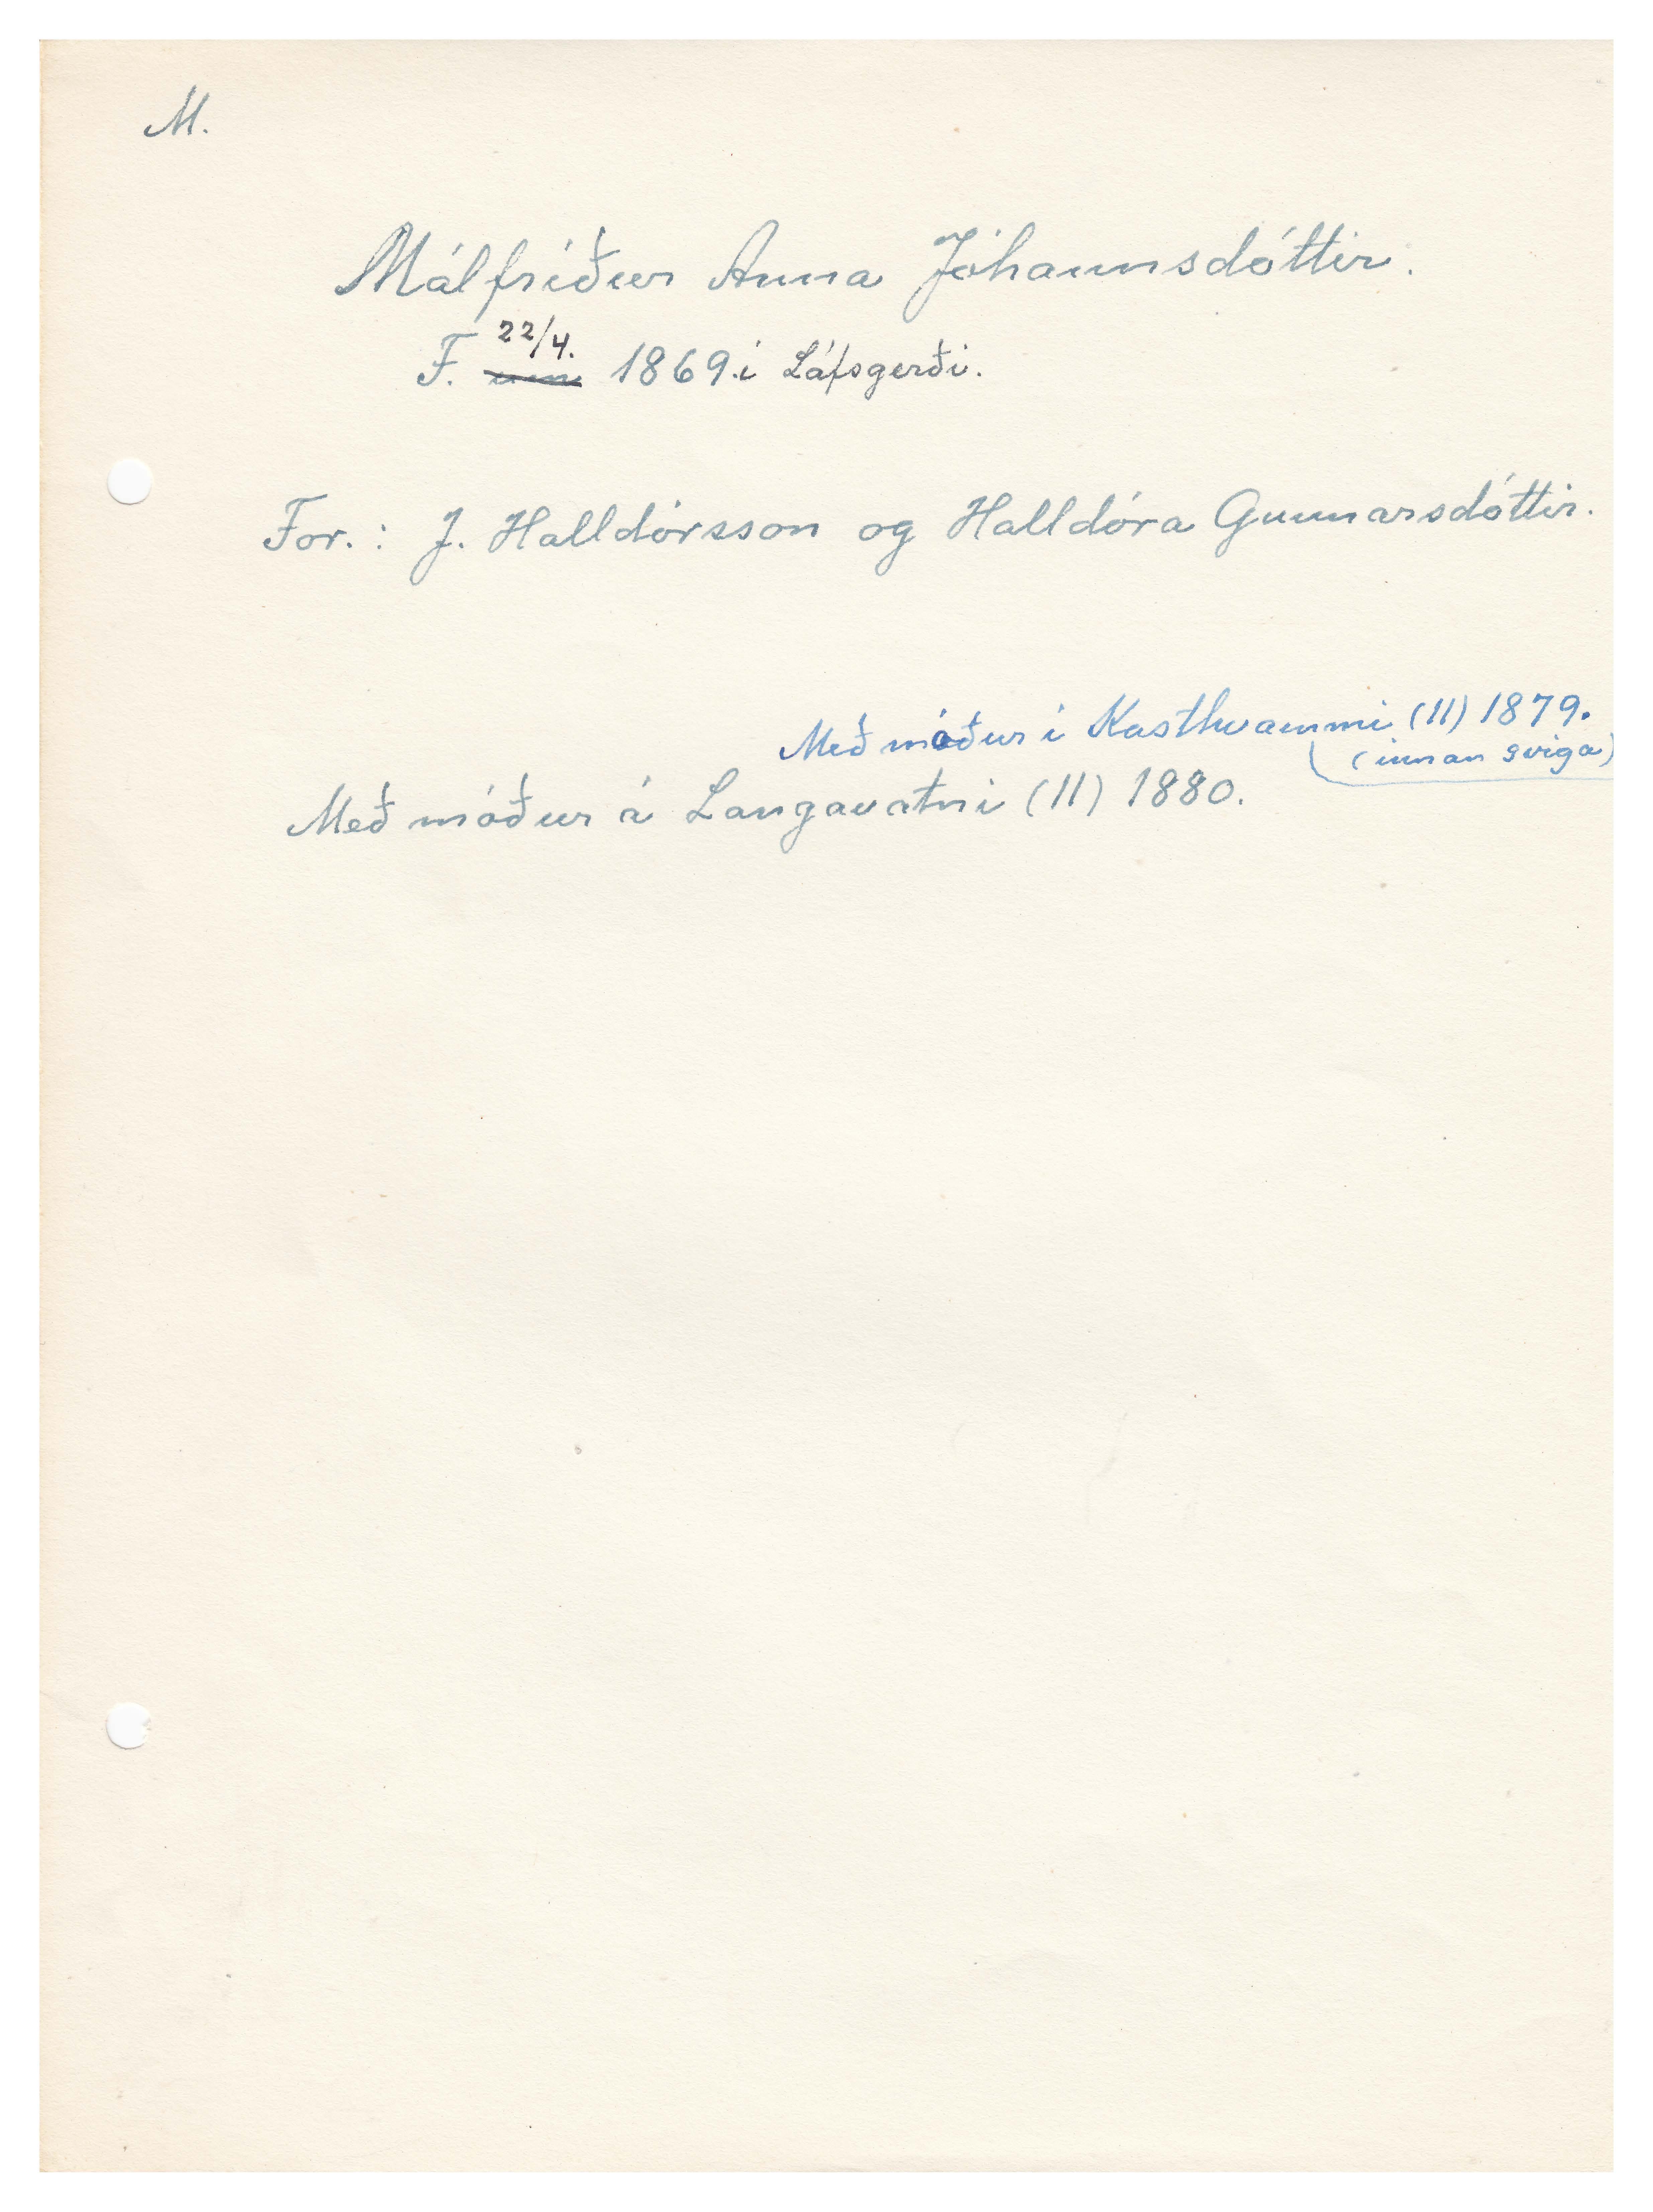 M.
Málfríður Anna Jóhannsdóttir.
F. um 22/4. 1869. í Láfsgerði.
For.: J. Halldórsson og Halldóra Gunnarsdóttir.
Með móður í Kasthvammi (11) 1879.
(innan sviga)
Með móður á Langavatni (11) 1880.